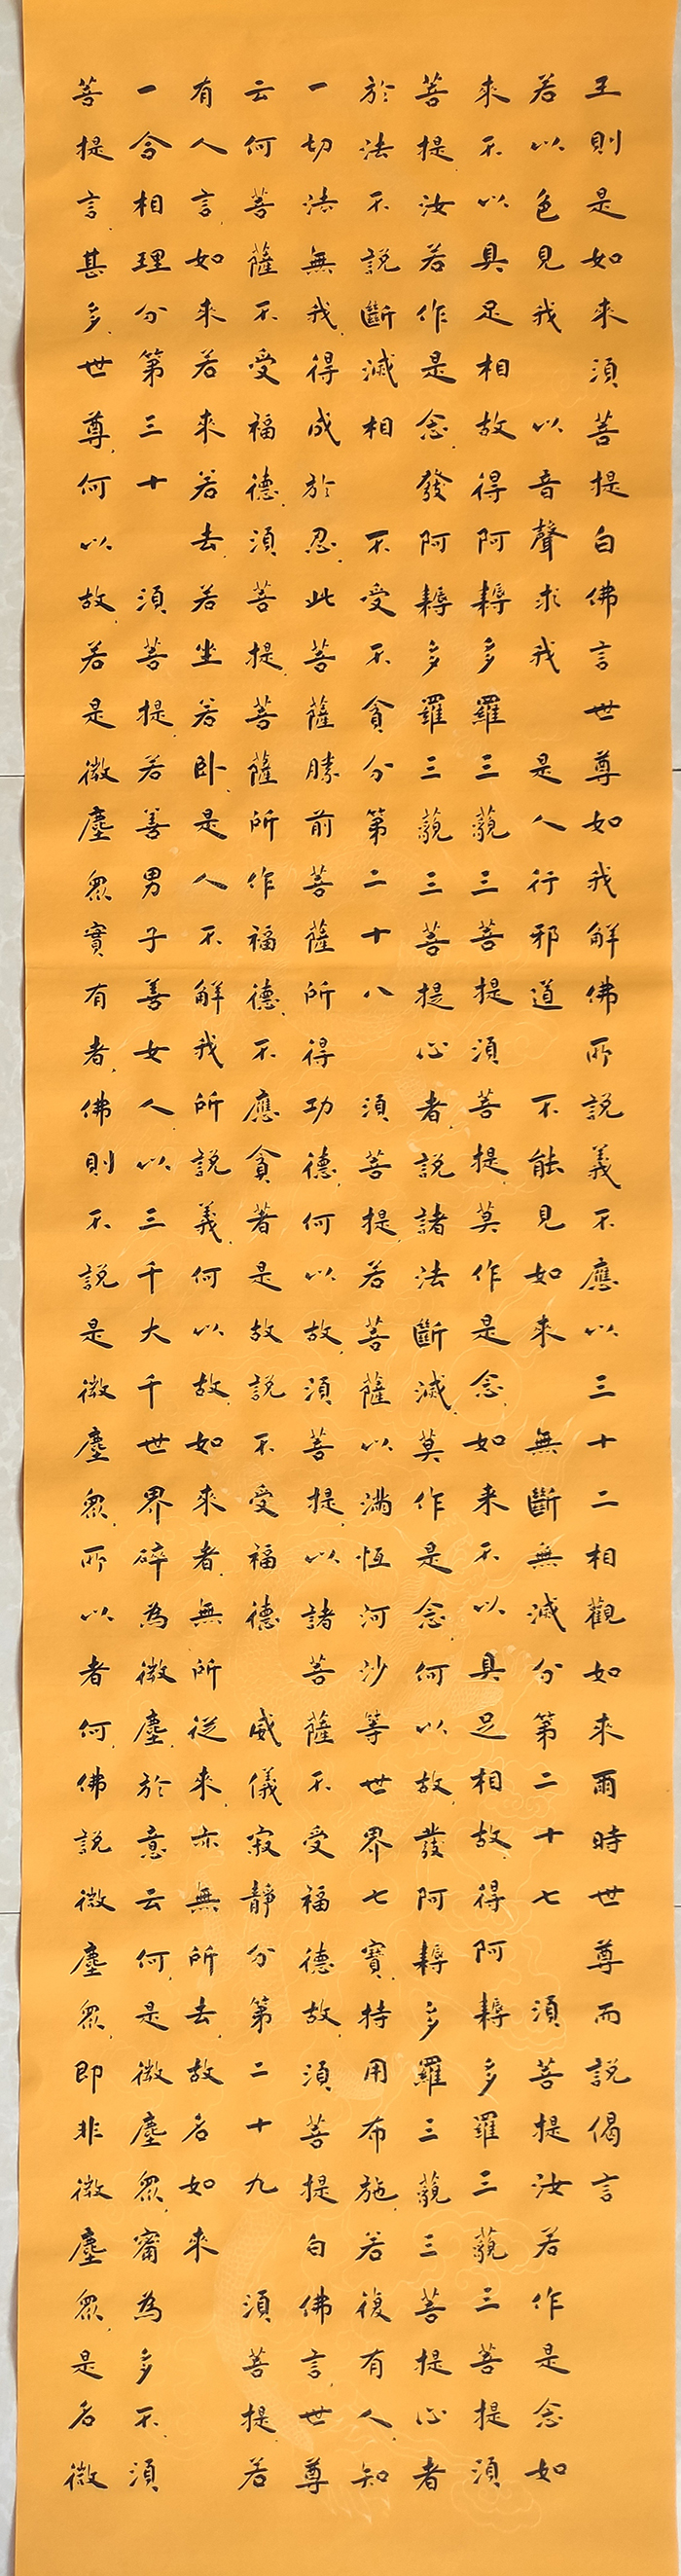 王則是如來須菩提白佛言世尊如我解佛所說義不應以三十二相觀如來爾時世尊而說偈言
若以色見我 以音聲求我 是人行邪道 不能見如来 無斷無滅分第二十七 須菩提汝若作是念如
來不以具足相故得阿耨多羅三藐三菩提須菩提莫作是念如来不以具足相故得阿耨多羅三藐三菩提須
菩提汝若作是念發阿耨多羅三藐三菩提心者說諸法斷滅莫作是念何以故發阿耨多羅三藐三菩提心者
於法不說斷滅相 不受不貪分第二十八 須菩提若菩薩以滿恆河沙等世界七寶持用布施若復有人知
一切法無我得成於忍此菩薩勝前菩薩所得功德何以故須菩提以諸菩薩不受福德故須菩提白佛言世尊
云何菩薩不受福德須菩提菩薩所作福德不應貪著是故說不受福德 威儀寂靜分第二十九 須菩提若
有人言如來若來若去若坐若卧是人不解我所說義何以故如來者無所從来亦無所去故名如來
一合相理分第三十 須菩提若善男子善女人以三千大千世界碎為微塵於意云何是微塵眾甯為多不須
菩提言甚多世尊何以故若是微塵眾實有者佛則不說是微塵眾所以者何佛說微塵眾即非微塵眾是名微